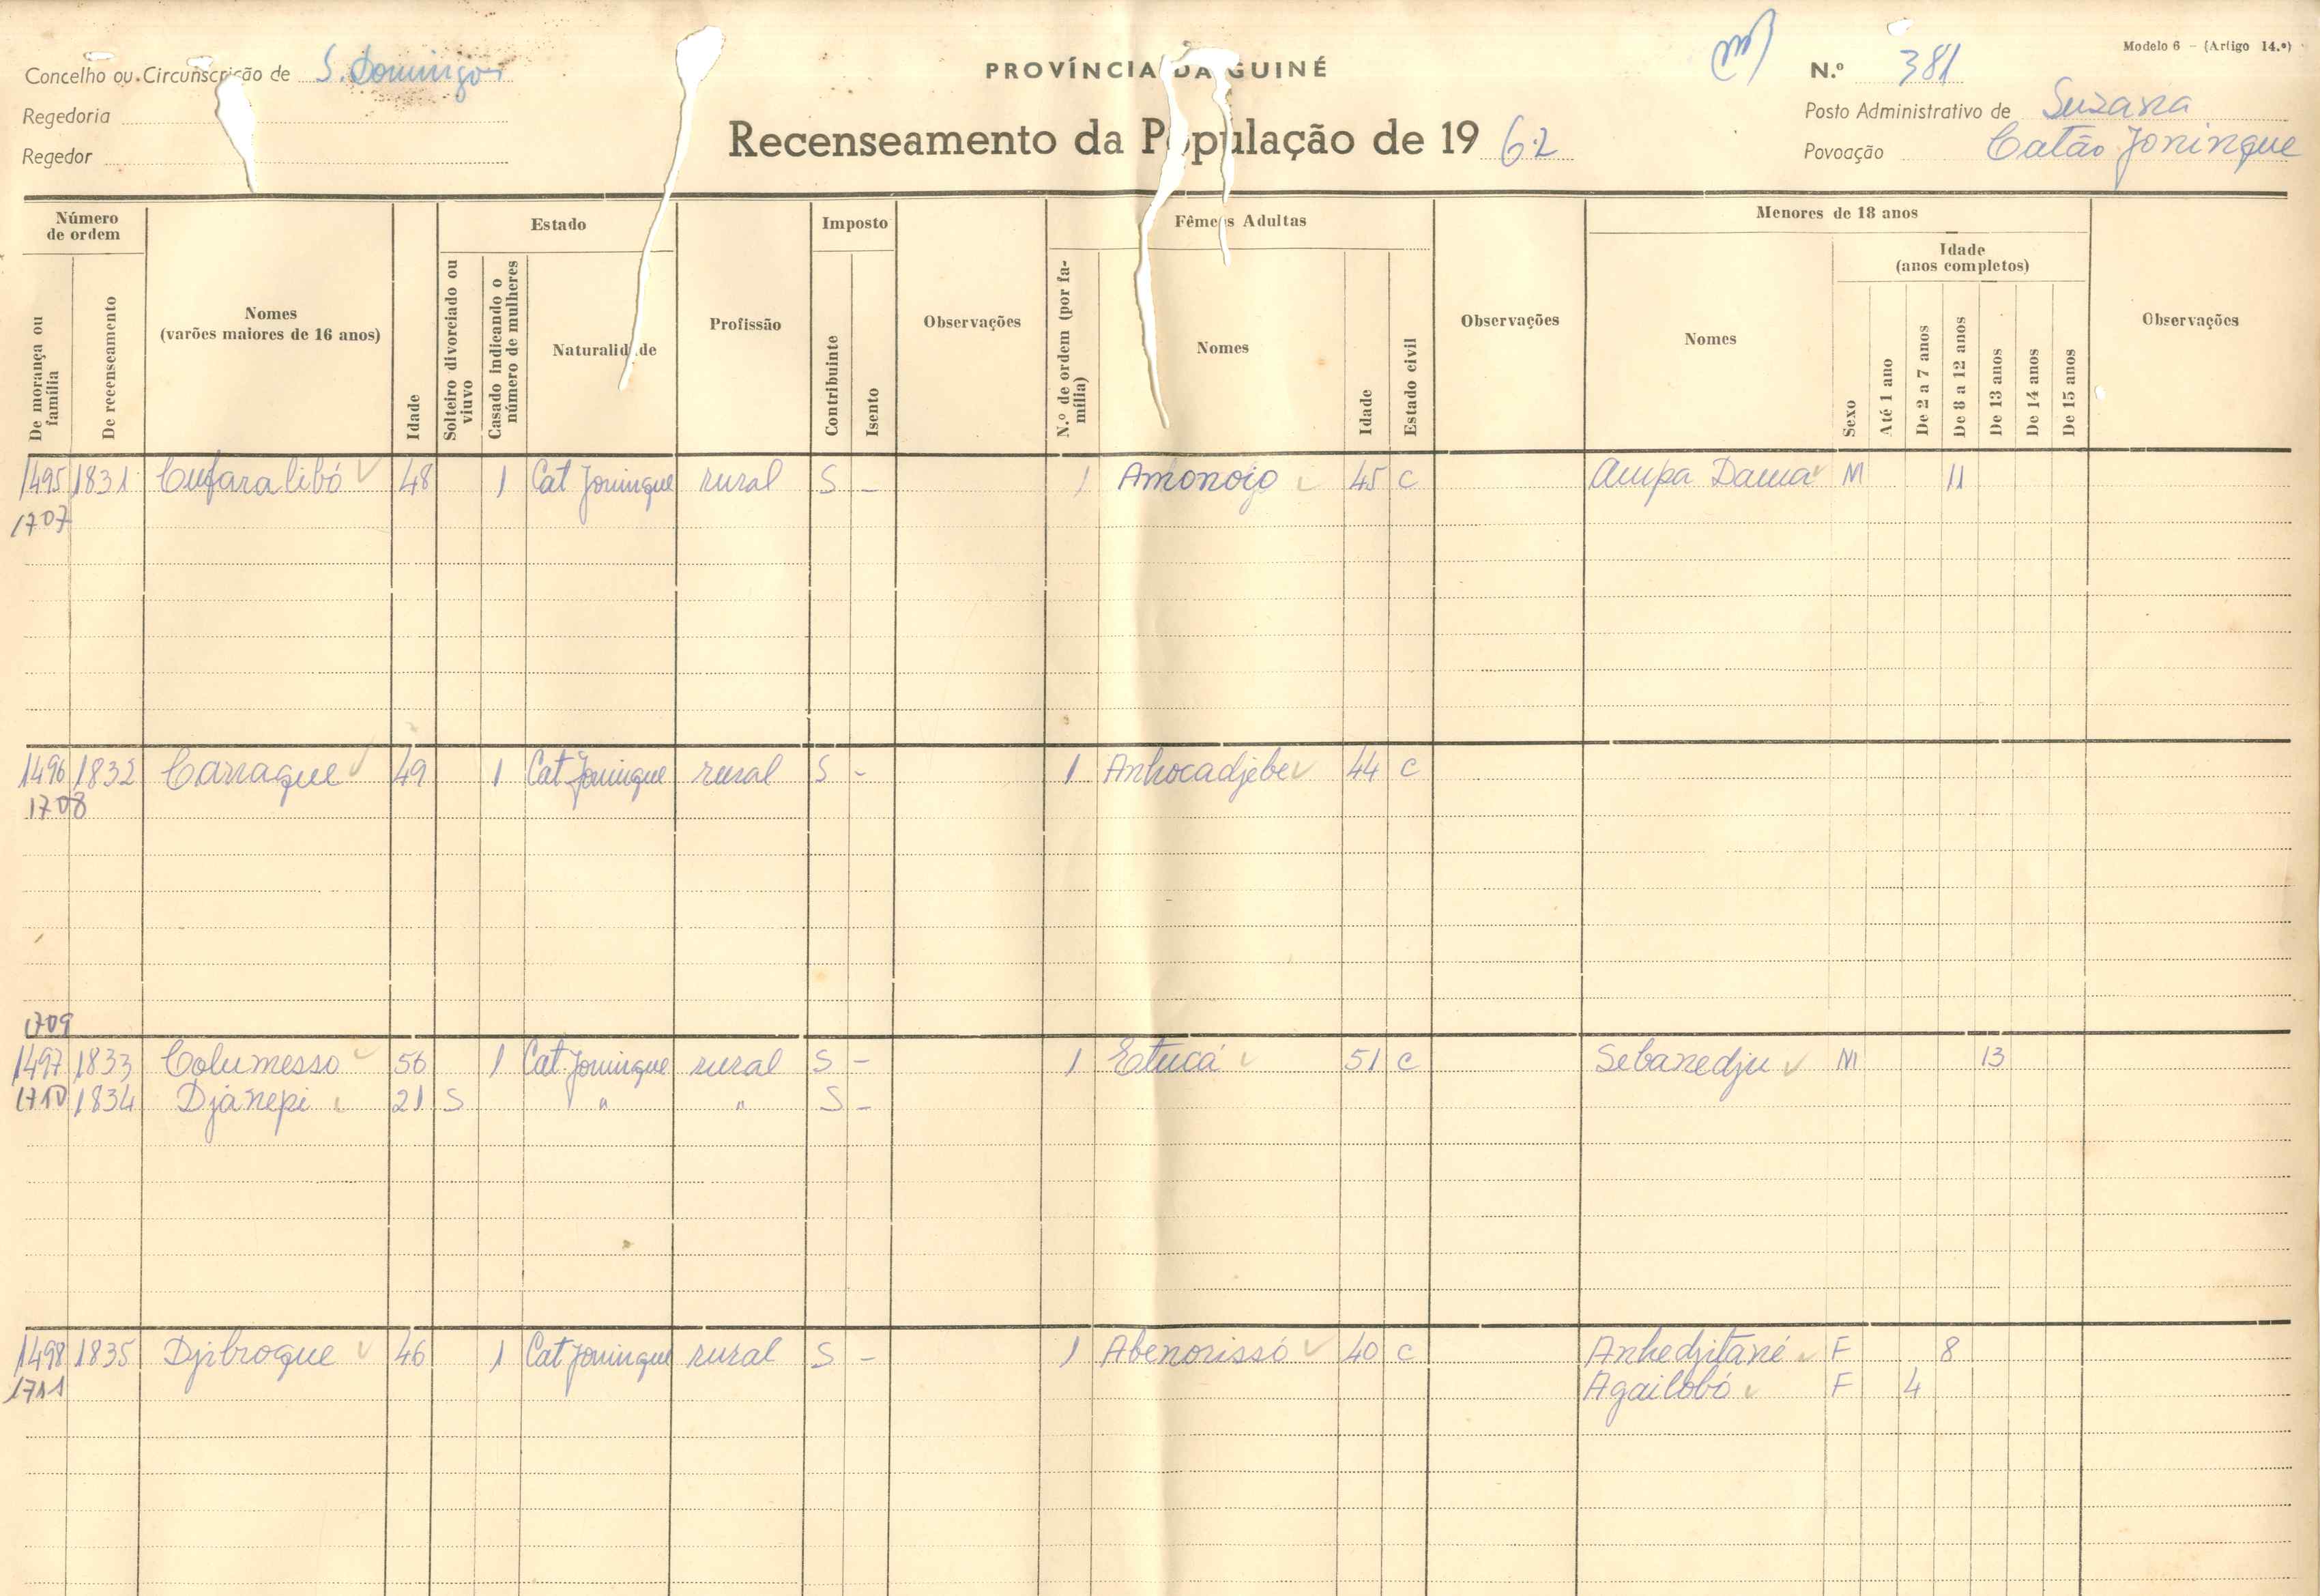 Modelo 6 - (Artigo 14.º)
Concelho ou Circunscrição de S. Domingos
PROVÍNCIA DA GUINÉ
N.º 381
Regedoria
Posto Administrativo de Suzana
Regedor
Recenseamento da População de 1962
Povoação Catão Joningue
Número de ordem
De morança ou família
De recenseamento
Nomes
(varões maiores de 16 anos)
Idade
Estado
Solteiro divorciado ou viuvo
Casado indicando o número de mulheres
Naturalidade
Profissão
Imposto
Contribuinte
Isento
Observações
Fêmeas Adultas
N.º de ordem (por família)
Nomes
Idade
Estado civil
Observações
Menores de 18 anos
Nomes
Sexo
Idade
(anos completos)
Até 1 ano
De 2 a 7 anos
De 8 a 12 anos
De 13 anos
De 14 anos
De 15 anos
Observações
1495 1831 Cufaralibó 48 1 Cat Joningue rural S - 1 Amonoio 45 C Ampa Dama M 11
1707
1496 1832 Carraque 49 1 Cat Joningue rural S - 1 Anhocadjebe 44 C
1708
1709
1497 1833 Columesso 56 1 Cat Joningue rural S - 1 Estucá 51 C Sebanedju M 13
1710 1834 Djanepi 21 S " " S -
1498 1835 Djibroque 46 1 Cat Joningue rural S - 1 Abenorissó 40 C Anhedjitané F 8
1711 Agailobó F 4